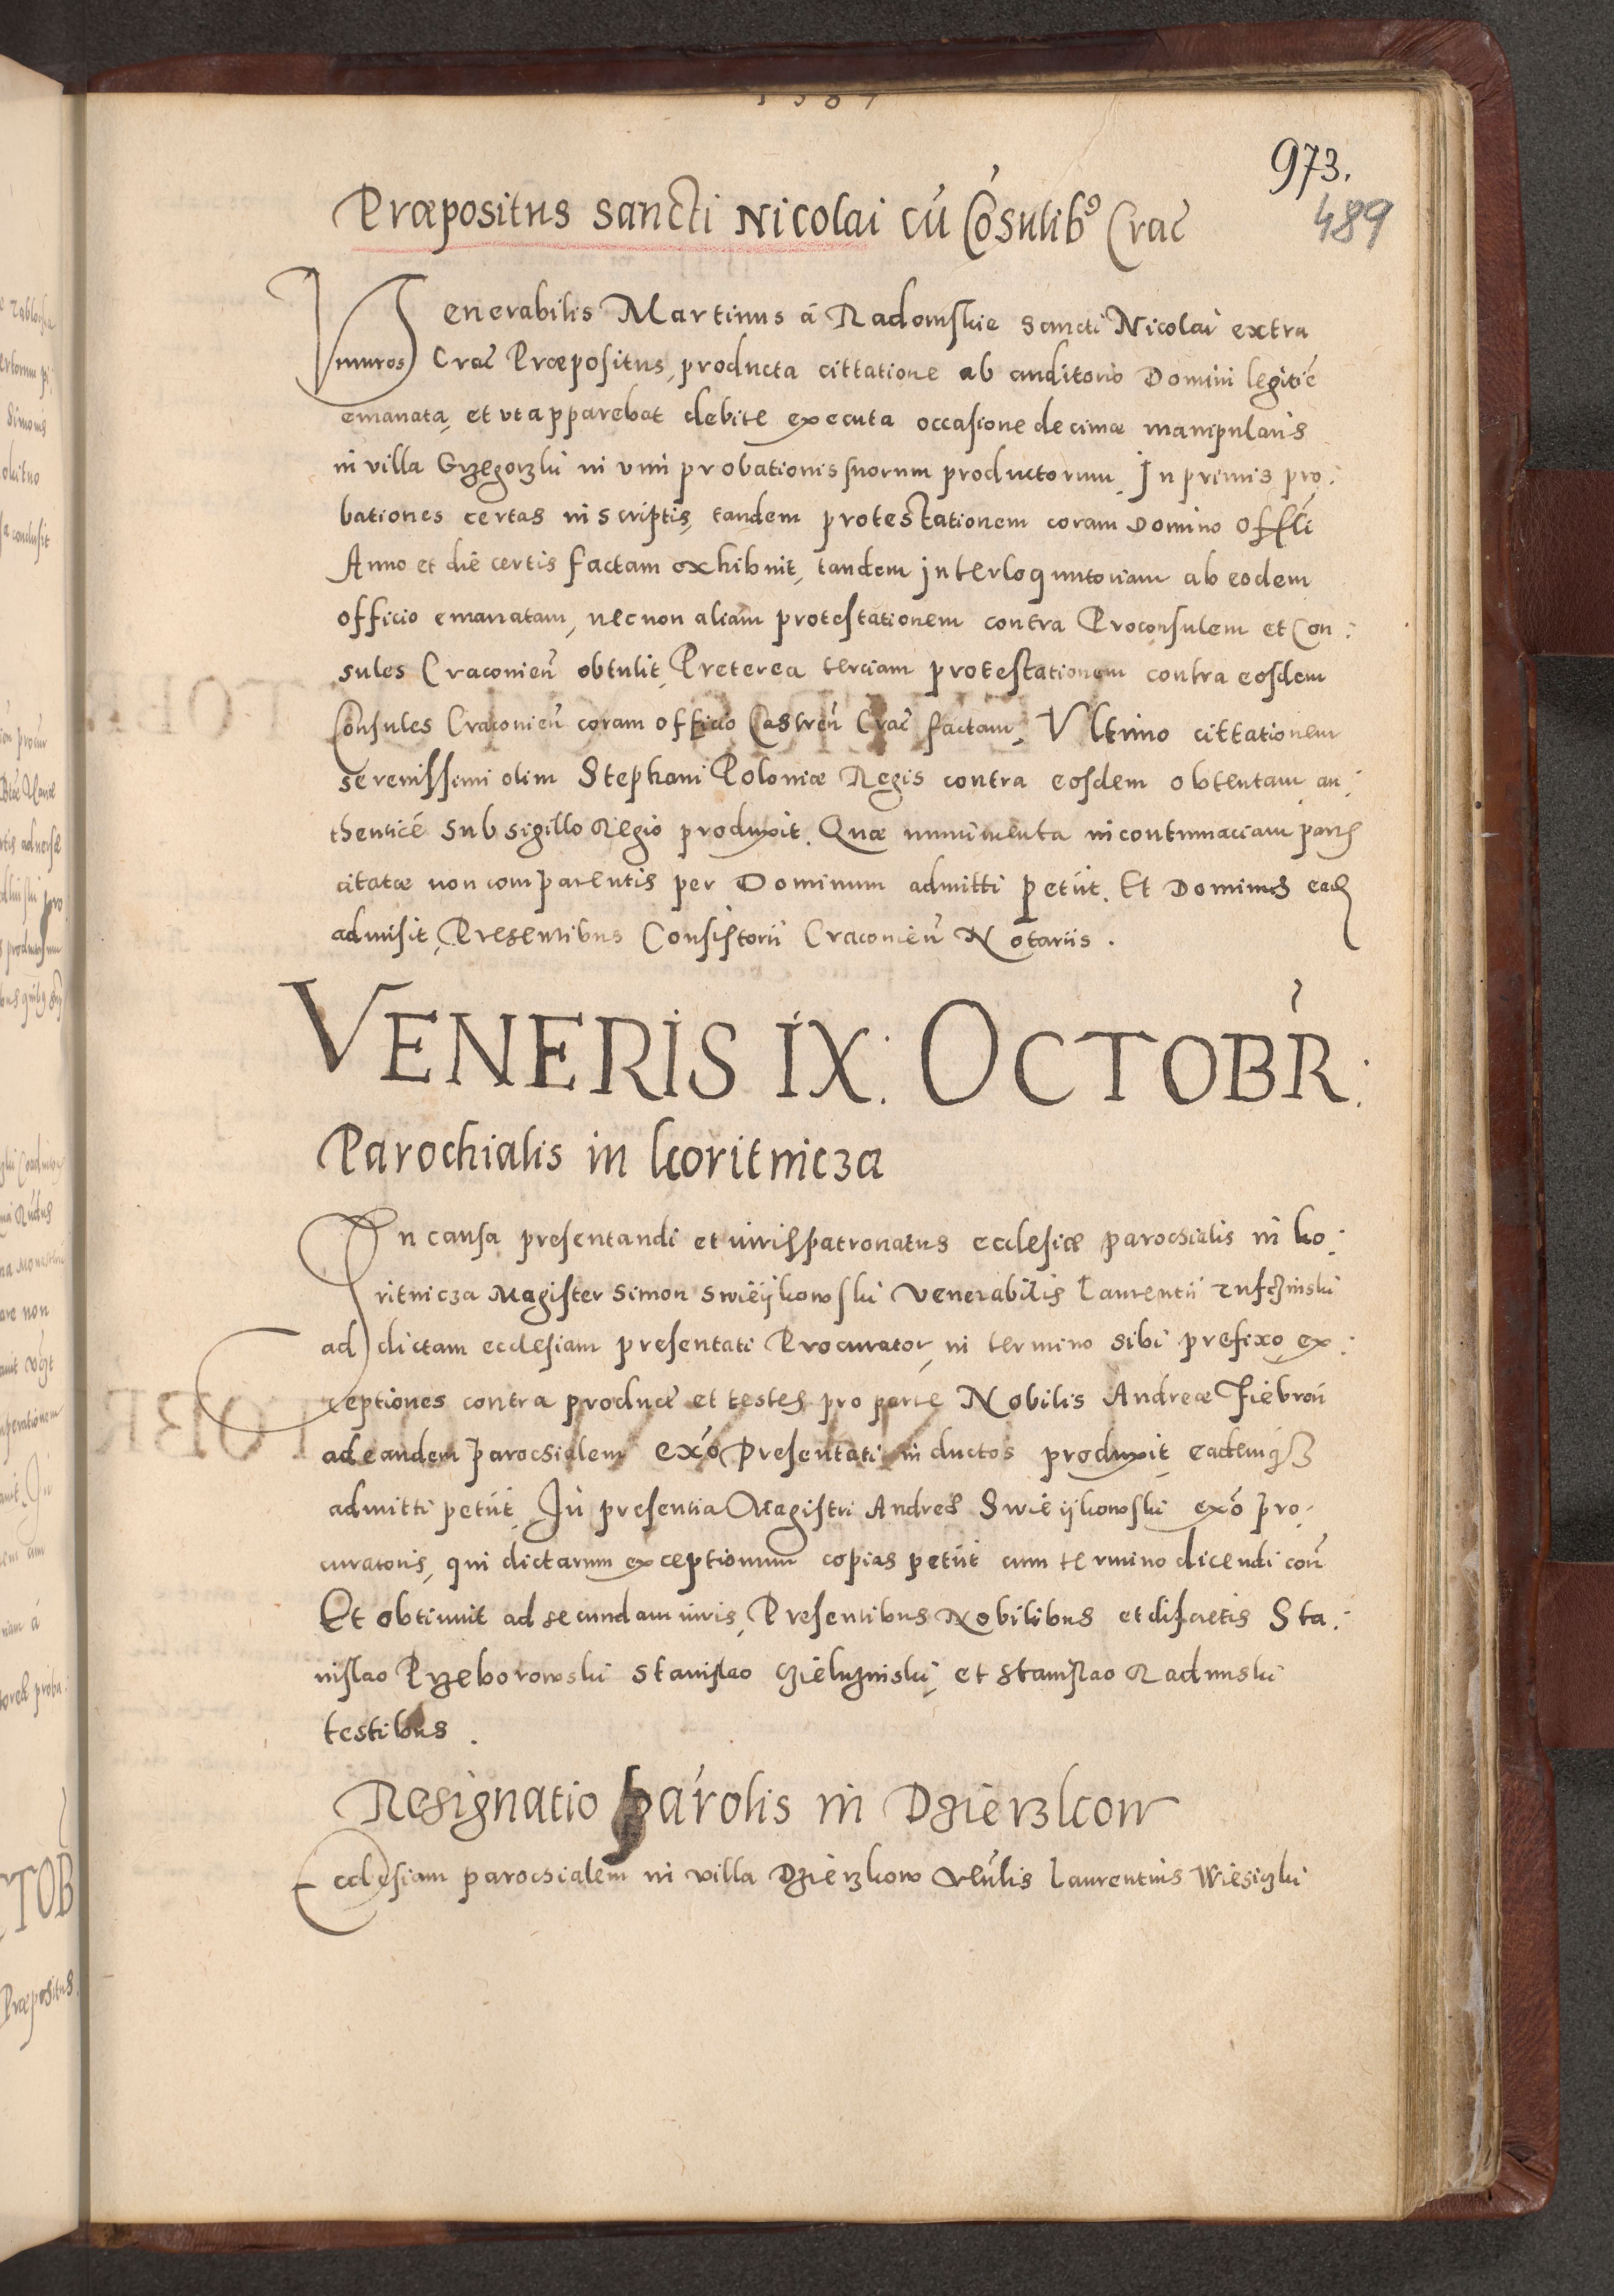 1587
973.
489
Præpositus Sancti Nicolai cū Cōsulib9 Crac̄
Venerabilis Martinus á Radomskie Sancti Nicolai extra
muros Crac̄ Præpositus, producta cittatione ab auditorio Domini legitīe
emanata, et vt apparebat debite executa occasione decimæ manipularis
in villa Grzegorzki in vim probationis suorum productorum. In primis pro:
bationes certas in scriptis, tandem protestationem coram Domino Offłi
Anno et die certis factam exhibuit, tandem interloquutoriam ab eodem
officio emanatam, necnon aliam protestationem contra Proconsulem et Con:
sules Cracouieñ obtulit, Preterea terciam protestationem contra eosdem
Consules Cracouieñ coram officio Castreñ Crac̄ factam, Vltimo cittationem
serenissimi olim Stephani Poloniæ Regis contra eosdem obtentam au:
thenticè sub sigillo Regio produxit. Quæ munimenta in contumaciam partis
citatæ non comparentis per Dominum admitti petiit. Et Dominus eadem
admisit, Presentibus Consistorii Cracouieñ Notariis.
VENERIS IX: OCTOBR:
Parochialis in Koritnicza
In causa presentandi et iuris patronatus ecclesiæ parochialis in Ko:
ritnicza Magister Simon Swieijkowski Venerabilis Laurentii
ad dictam ecclesiam presentati Procurator, in termino sibi prefixo ex:
ceptiones contra produc̄ et testes pro parte Nobilis Andreæ Fiebrow̄
ad eandem parochialem ex̄o Presentati inductos produxit, eademq3
admitti petiit, In presentia Magistri Andreæ Swieijkowski ex̄o pro:
curatoris, qui dictarum exceptionum copias petiit cum termino dicendi coñ
Et obtinuit ad secundam iuris, Presentibus Nobilibus et discretis Sta:
nislao Przeborowski Stanislao Zieluzniski, et Stanislao Radunski
testibus.
Resignatio párolis in Dzierzkow
Ecclesiam parochialem in villa Dzierzkow Veñlis Laurentius Wiesiczki